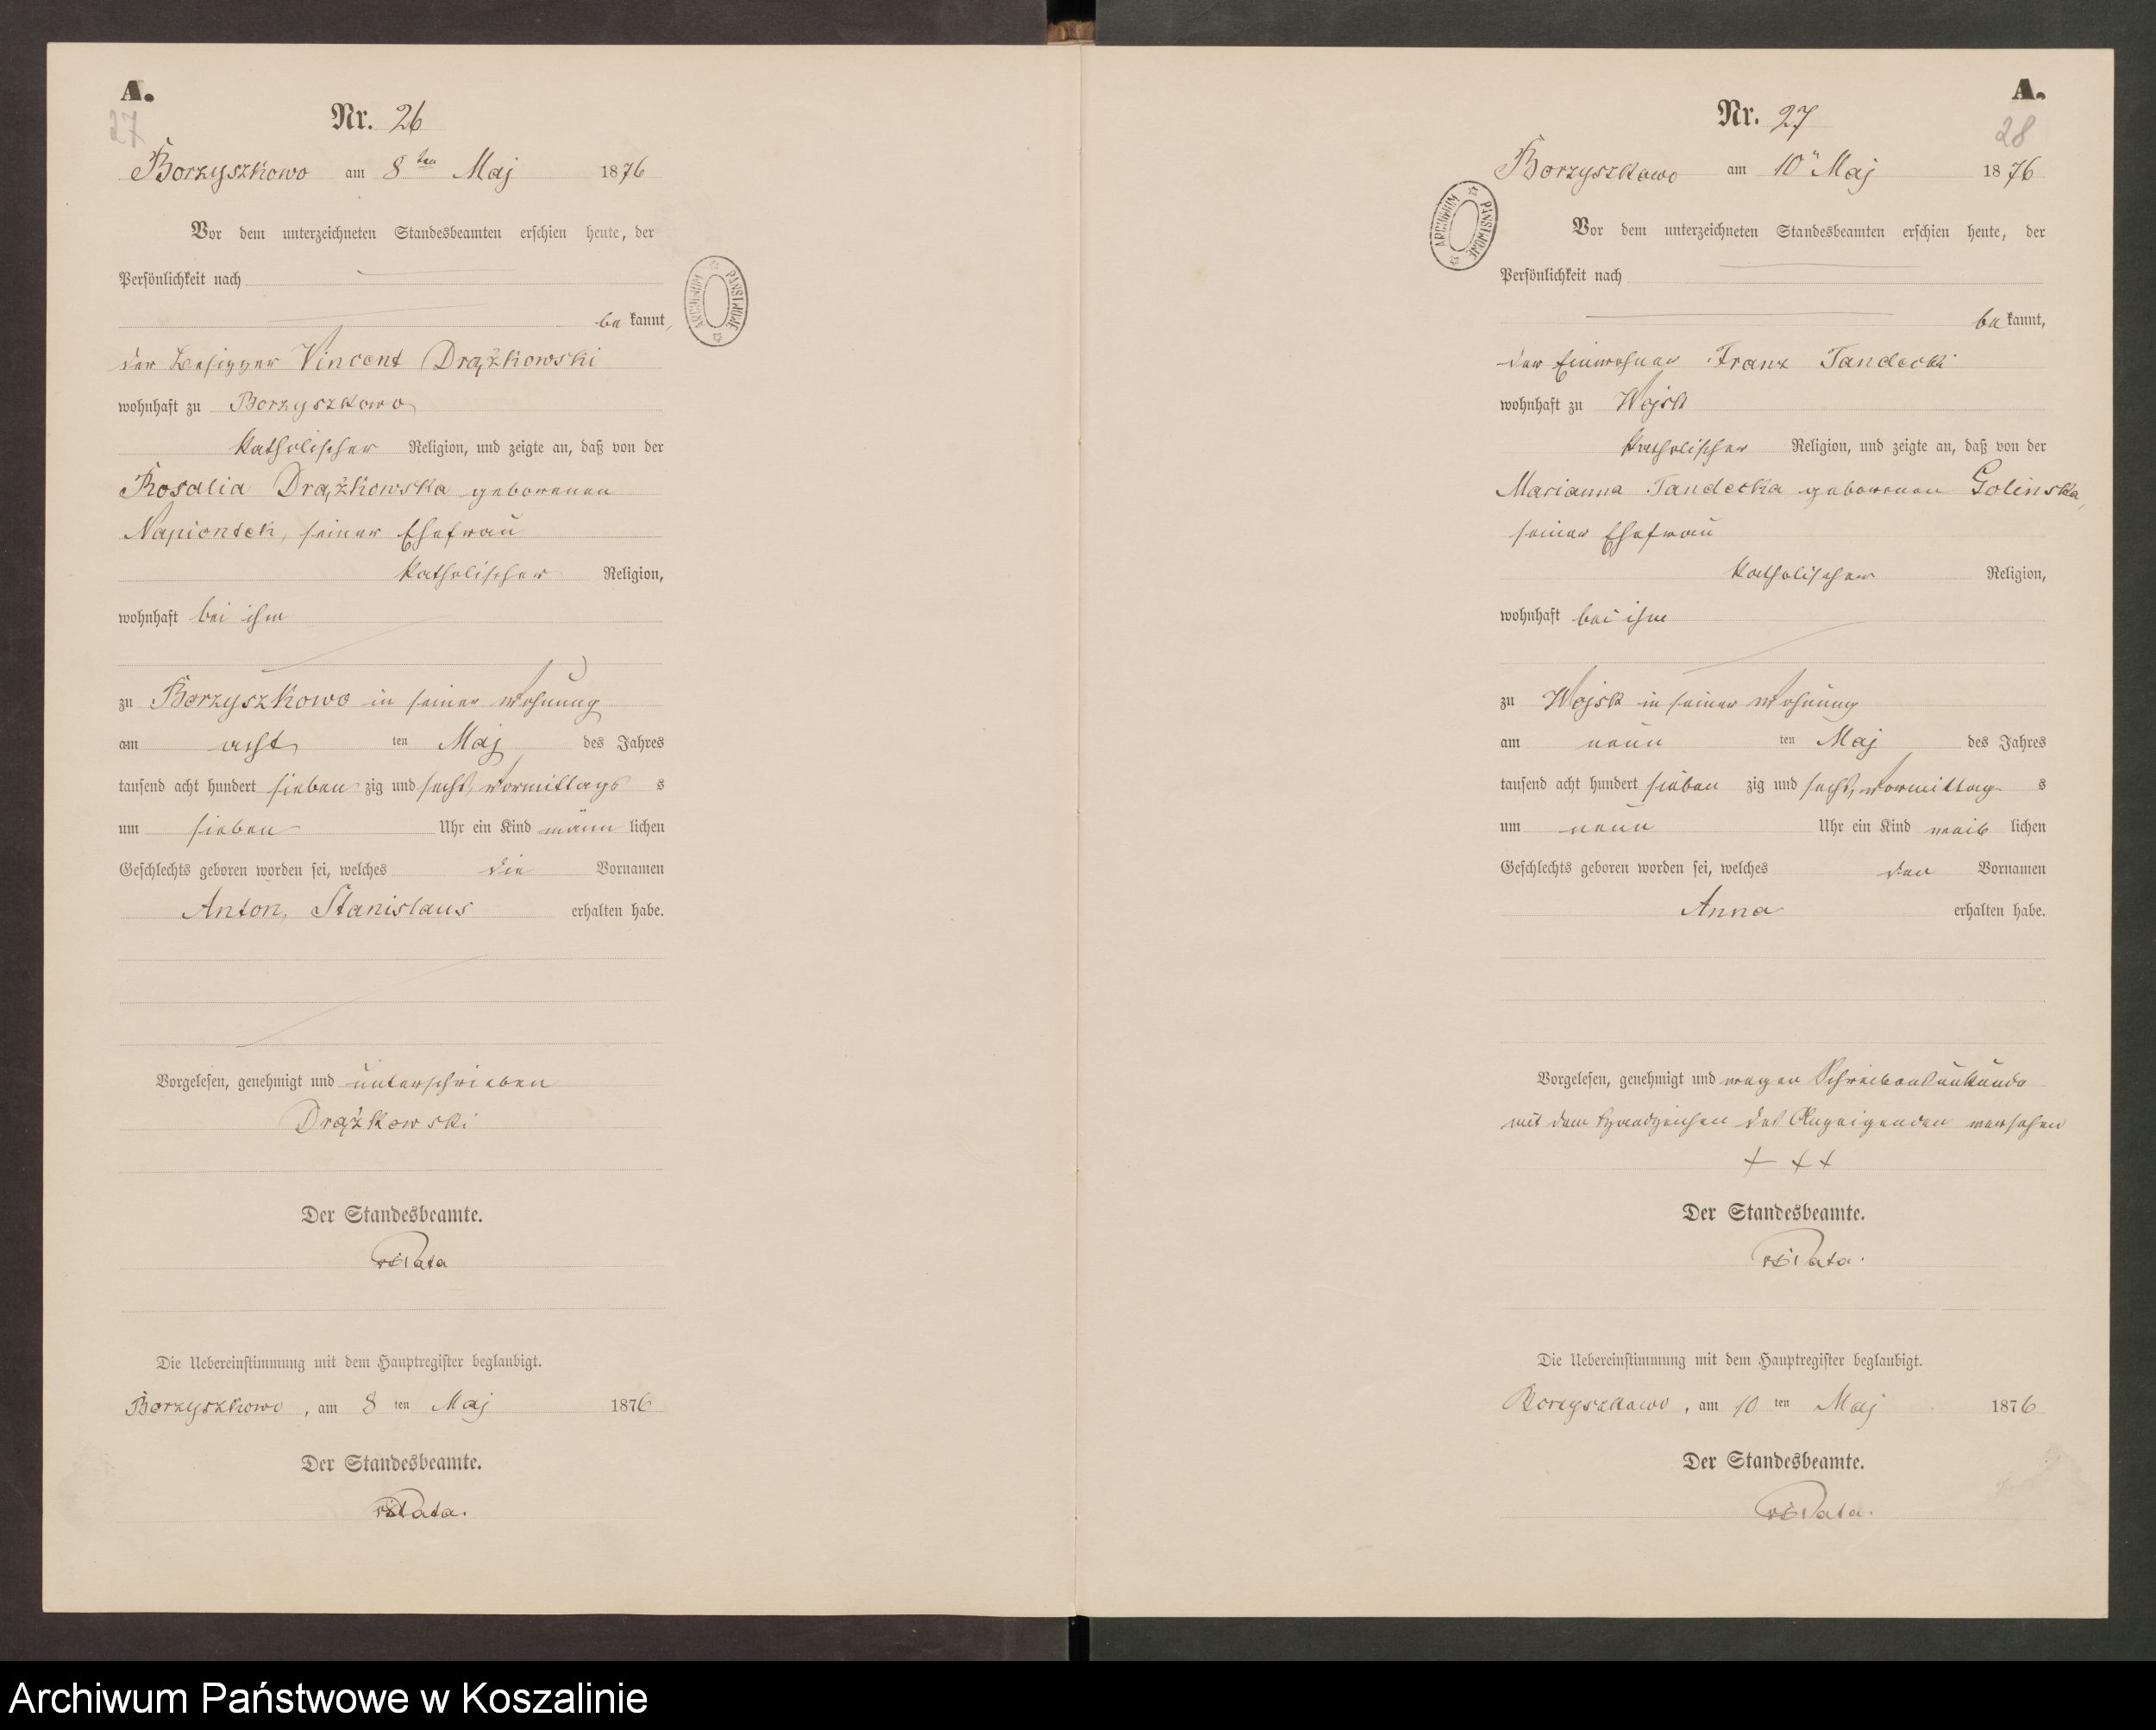 A.
27
Nr. 26
Borzyszkowo am 8ten Maj 1876
Vor dem unterzeichneten Standesbeamten erschien heute, der
Persönlichkeit nach
be kannt,
der Besitzer Vincent Drążkowski
wohnhaft zu Borzyszkowo
katholischer Religion, und zeigte an, daß von der
Rosalia Drążkowska geborenen
Napiontek, seiner Ehefrau
katholischer Religion,
wohnhaft bei ihm
zu Borzyszkowo in seiner Wohnung
am acht ten Maj des Jahres
tausend acht hundert sieben zig und sechs, Vormittags s
um sieben Uhr ein Kind männ lichen
Geschlechts geboren worden sei, welches die Vornamen
Anton, Stanislaus erhalten habe.
Vorgelesen, genehmigt und unterschrieben
Drążkowski
Der Standesbeamte.
Die Uebereinstimmung mit dem Hauptregister beglaubigt.
Borzyszkowo, am 8 ten Maj 1876
Der Standesbeamte.
ARCHIWUM PAŃSTWOWE
A.
28
Nr. 27
Borzyszkowo am 10" Maj 1876
Vor dem unterzeichneten Standesbeamten erschien heute, der
Persönlichkeit nach
be kannt,
der Einwohner Franz Tandecki
wohnhaft zu Wojsk
katholischer Religion, und zeigte an, daß von der
Marianna Tandecka geborenen Golinska,
seiner Ehefrau
katholischer Religion,
wohnhaft bei ihm
zu Wojsk in seiner Wohnung
am neun ten Maj des Jahres
tausend acht hundert sieben zig und sechs, Vormittag s
um neun Uhr ein Kind weib lichen
Geschlechts geboren worden sei, welches den Vornamen
Anna erhalten habe.
Vorgelesen, genehmigt und wegen Schreibensunkunde
mit dem Handzeichen des Anzeigenden versehen
+ + +
Der Standesbeamte.
Die Uebereinstimmung mit dem Hauptregister beglaubigt.
Borzyszkowo, am 10 ten Maj 1876
Der Standesbeamte.
ARCHIWUM PAŃSTWOWE
Archiwum Państwowe w Koszalinie